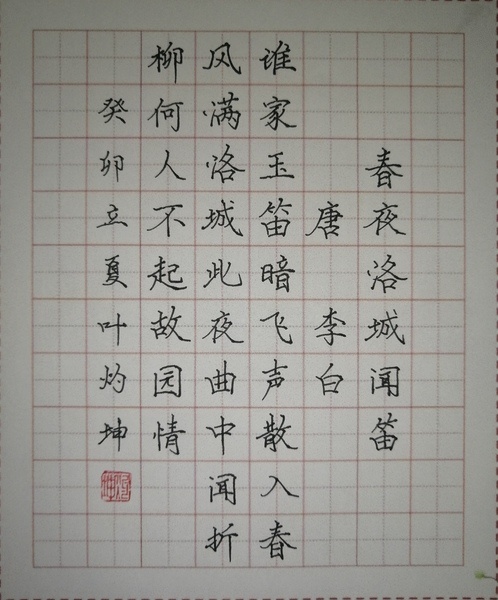 春夜洛城闻笛
唐 李白
谁家玉笛暗飞声散入春
风满洛城此夜曲中闻折
柳何人不起故园情
癸卯立夏叶灼坤